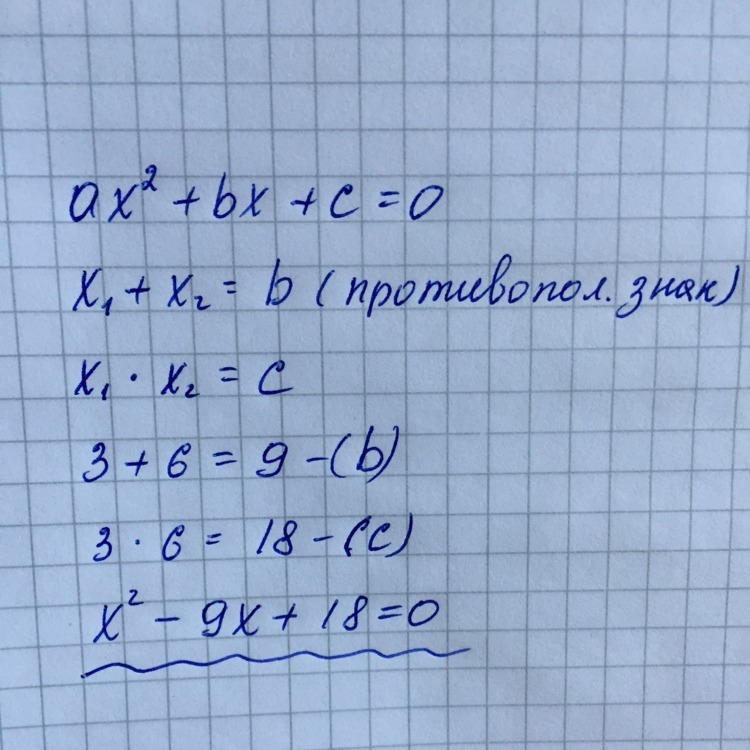 ax² + bx + c = 0
x₁ + x₂ = b (противопол. знак)
x₁ · x₂ = c
3 + 6 = 9 - (b)
3 · 6 = 18 - (c)
x² - 9x + 18 = 0